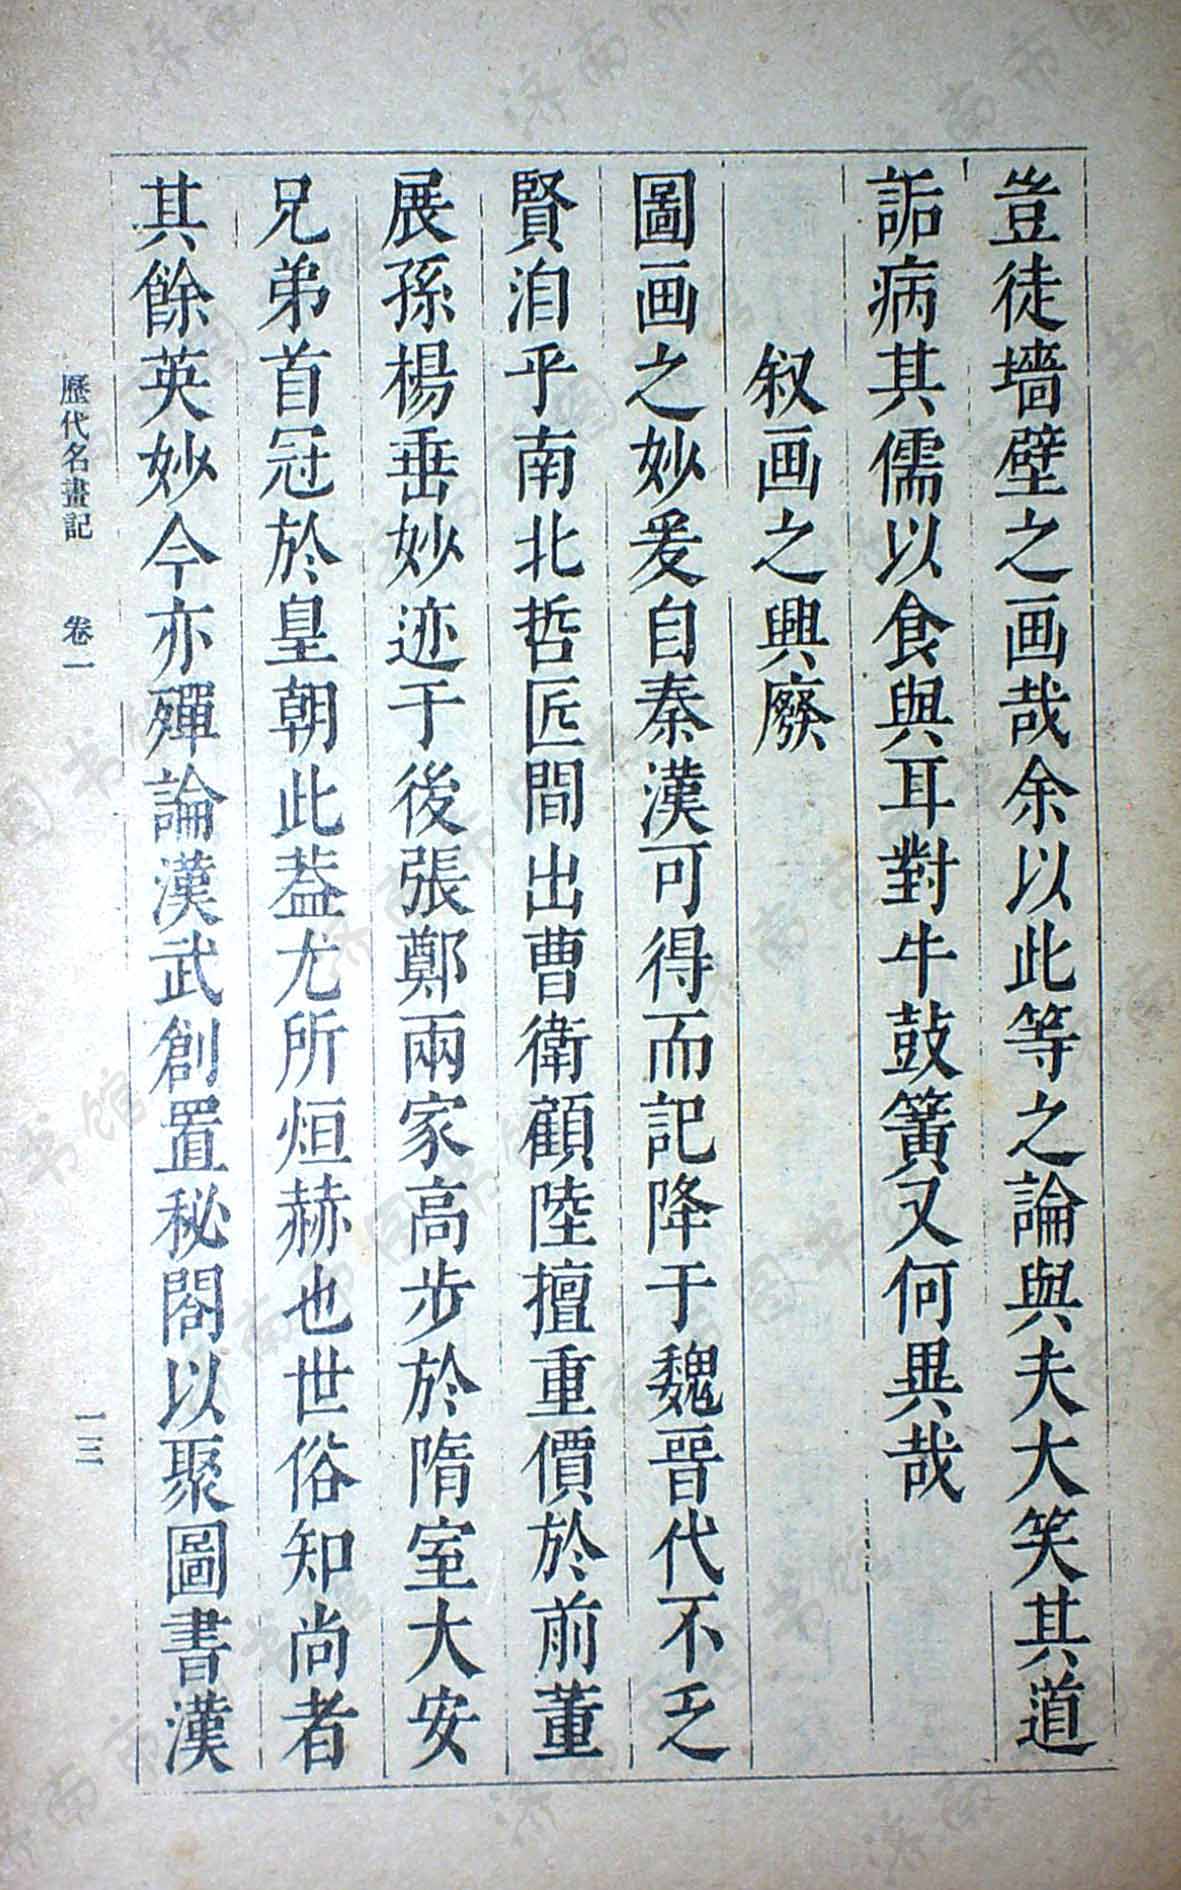 豈徒墻壁之画哉余以此等之論與夫大笑其道
詬病其儒以食與耳對牛鼓簧又何異哉
叙画之興廢
圖画之妙爰自秦漢可得而記降于魏晉代不乏
賢洎乎南北哲匠間出曹衛顧陸擅重價於前董
展孫楊垂妙迹于後張鄭兩家高步於隋室大安
兄弟首冠於皇朝此葢尤所烜赫也世俗知尚者
其餘英妙今亦殫論漢武創置秘閣以聚圖書漢
歷代名畫記 卷一 一三
济南市图书馆